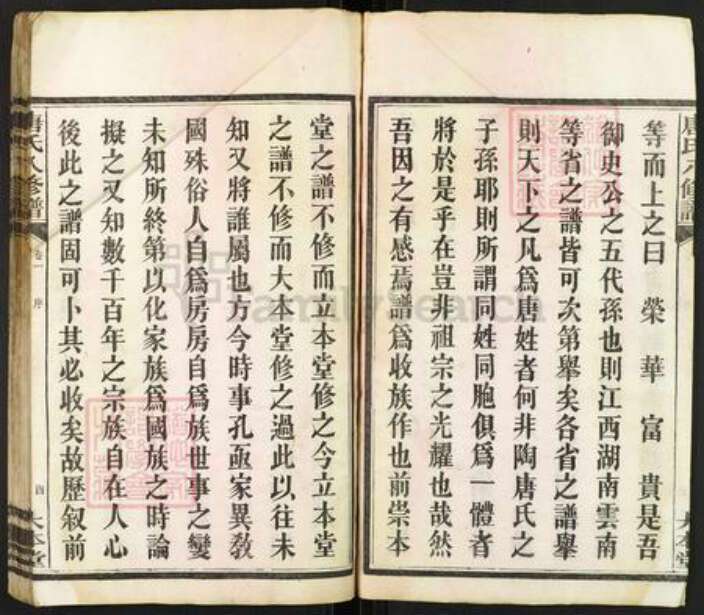 等而上之曰榮華富貴是吾
御史公之五代孫也則江西湖南雲南
等省之譜皆可次第舉矣各省之譜舉
則天下之凡爲唐姓者何非陶唐氏之
子孫耶則所謂同姓同胞俱爲一體者
將於是乎在豈非祖宗之光耀也哉然
吾因之有感焉譜爲收族作也前崇本
堂之譜不修而立本堂修之今立本堂
之譜不修而大本堂修之過此以往未
知又將誰屬也方今時事孔亟家異教
國殊俗人自爲房房自爲族世事之變
未知所終第以化家族爲國族之時論
擬之又知數千百年之宗族自在人心
後此之譜固可卜其必收矣故歷叙前
唐氏八修譜
卷一 序
四
大本堂
FamilySearch